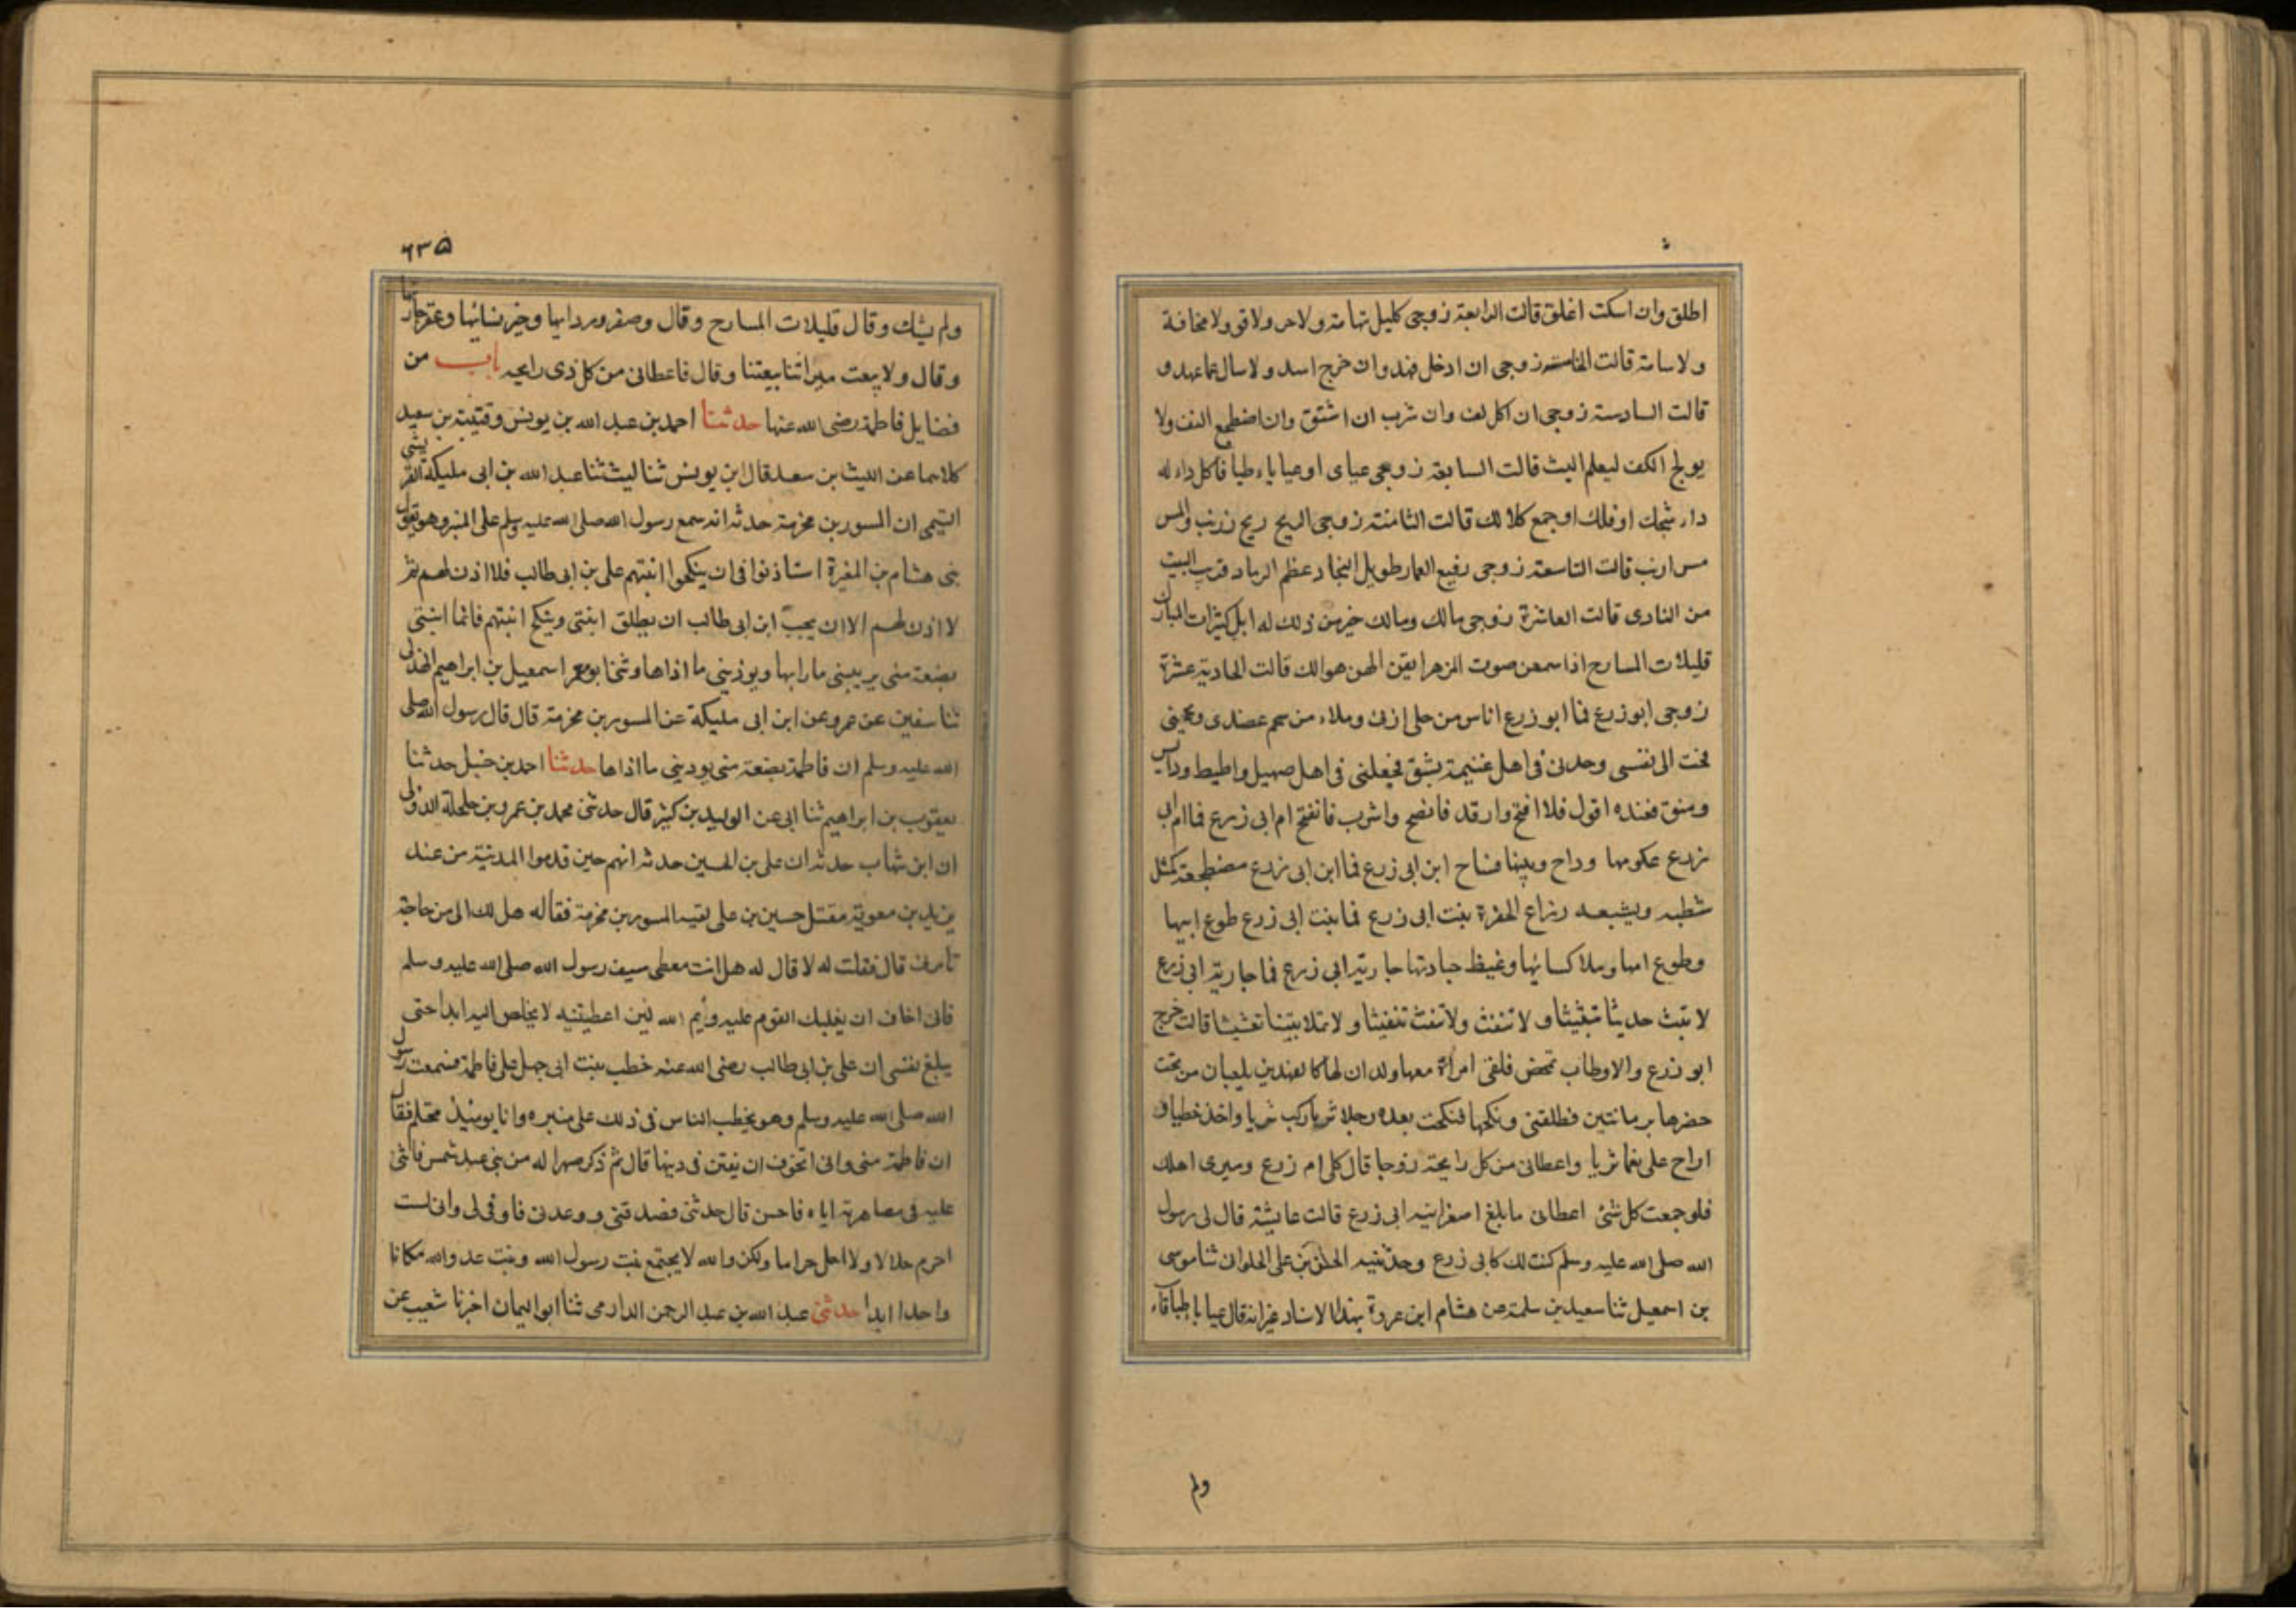 اطلق وان اسكت اغلق قالت الرابعة زوجى كليل تهامة ولا حر ولا قر ولا مخافة
ولا سامة قالت الخامسة زوجى ان ادخل فهد وان خرج اسد ولا سال عما عهد و
قالت السادسة زوجى ان اكل لف وان شرب ان اشتق وان اضطجع التف ولا
يولج الكف ليعلم البث قالت السابعة زوجى عياى او عياياء طبا فا كل داء له
داء شجك او فلك او جمع كلا لك قالت الثامنة زوجى الريح ريح زرنب والمس
مس ارنب قالت التاسعة زوجى رفيع العماد طويل النجاد عظم الرماد قرب البيت
من النادى قالت العاشرة زوجى مالك وما لك خير من ذلك له ابل كثيرات المبارك
قليلات المسارح اذا سمعن صوت المزهر ايقن انهن هوالك قالت الحادية عشرة
زوجى ابو زرع فما ابو زرع اناس من حلى اذنى وملاء من سحم عضدى وبجحنى
فبجحت الى نفسى وجدنى فى اهل غنيمة بشق فجعلنى فى اهل صهيل واطيط ودايس
ومنق فعنده اقول فلا اقبح وارقد فاتصبح واشرب فاتقنح ام ابى زرع فما ام ابى
زرع عكومها رداح وبيتها فساح ابن ابى زرع فما ابن ابى زرع مضطجعه كمثل
شطبه ويشبعه ذراع الجفرة بنت ابى زرع فما بنت ابى زرع طوع ابيها
وطوع امها وملا كسائها وغيظ جارتها جارية ابى زرع فما جارية ابى زرع
لا تبث حديثا تبثيثا ولا تنقث ولا تنفث تنقيثا ولا تملا بيتنا تعشيشا قالت خرج
ابو زرع والاوطاب تمخض فلقى امراة معها ولدان لها كالفهدين يلعبان من تحت
خصرها برمانتين فطلقنى ونكحها فنكحت بعده رجلا ثريا ركب شريا واخذ خطيا و
اراح على نعما ثريا واعطانى من كل رايحة زوجا قال كلى ام زرع وميرى اهلك
فلو جمعت كل شئ اعطانى ما بلغ اصغر انية ابى زرع قالت عايشة قال لى رسول
الله صلى الله عليه وسلم كنت لك كابى زرع وحدثنيه الحسن بن على الحلوان ثنا موسى
بن اسمعيل ثنا سعيد بن سلمة عن هشام ابن عروة بهذا الاسناد غير انه قال عيايا طباقاء
ولم
٦٣٥
ولم يشك وقال قليلات المسارح وقال وصفر ردايها وخير نسائها وعقر جارتها
وقال ولا يبعث ميراثنا بيعتنا وقال فاعطانى من كل ذى رايحه باب من
فضايل فاطمة رضى الله عنها حدثنا احمد بن عبد الله بن يونس وقتيبة بن سعيد
كلاهما عن الليث بن سعد قال ابن يونس ثنا ليث ثنا عبد الله بن ابى مليكة القرشى
التيمى ان المسور بن مخرمة حدثه انه سمع رسول الله صلى الله عليه وسلم على المنبر وهو يقول
بنى هشام بن المغيرة استاذنوا فى ان ينكحوا ابنتهم على بن ابى طالب فلا اذن لهم ثم
لا اذن لهم الا ان يحب ابن ابى طالب ان يطلق ابنتى وينكح ابنتهم فانما ابنتى
بضعة منى يريبنى ما رابها ويوذينى ما اذاها وثنا ابو معمر اسمعيل بن ابراهيم الهذلى
ثنا سفين عن عمرو عن ابن ابى مليكة عن المسور بن مخرمة قال قال رسول الله صلى
الله عليه وسلم ان فاطمة بضعة منى يوذينى ما اذاها حدثنا احمد بن حنبل حدثنا
يعقوب بن ابراهيم ثنا ابى عن الوليد بن كثير قال حدثنى محمد بن عمرو بن حلحلة الدولى
ان ابن شهاب حدثه ان على بن الحسين حدثه انهم حين قدموا المدينة من عند
يزيد بن معوية مقتل حسين بن على لقيه المسور بن مخرمة فقال له هل لك الى من حاجة
تامرنى قال فقلت له لا قال له هل انت معطى سيف رسول الله صلى الله عليه وسلم
فانى اخاف ان يغلبك القوم عليه وأيم الله لين اعطيتنيه لا يخلص اليه ابدا حتى
يبلغ نفسى ان على بن ابى طالب رضى الله عنه خطب بنت ابى جهل على فاطمة فسمعت رسول
الله صلى الله عليه وسلم وهو يخطب الناس فى ذلك على منبره وانا يومئذ محتلم فقال
ان فاطمة منى وانى اتخوف ان تفتن فى دينها قال ثم ذكر صهرا له من بنى عبد شمس فاثنى
عليه فى مصاهرته اياه فاحسن قال حدثنى فصدقنى ووعدنى فاوفى لى وانى لست
احرم حلالا ولا احل حراما ولكن والله لا يجتمع بنت رسول الله وبنت عدو الله مكانا
واحدا ابدا حدثنى عبد الله بن عبد الرحمن الدارمى ثنا ابو اليمان اخبرنا شعيب عن